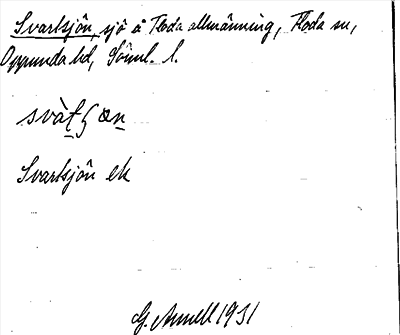 Svartsjön, sjö å Floda allmänning, Floda sn,
Oppunda hd, Söml. l.
svàt̲ʂøn̲
Svartsjön ek
G. Annell 1931